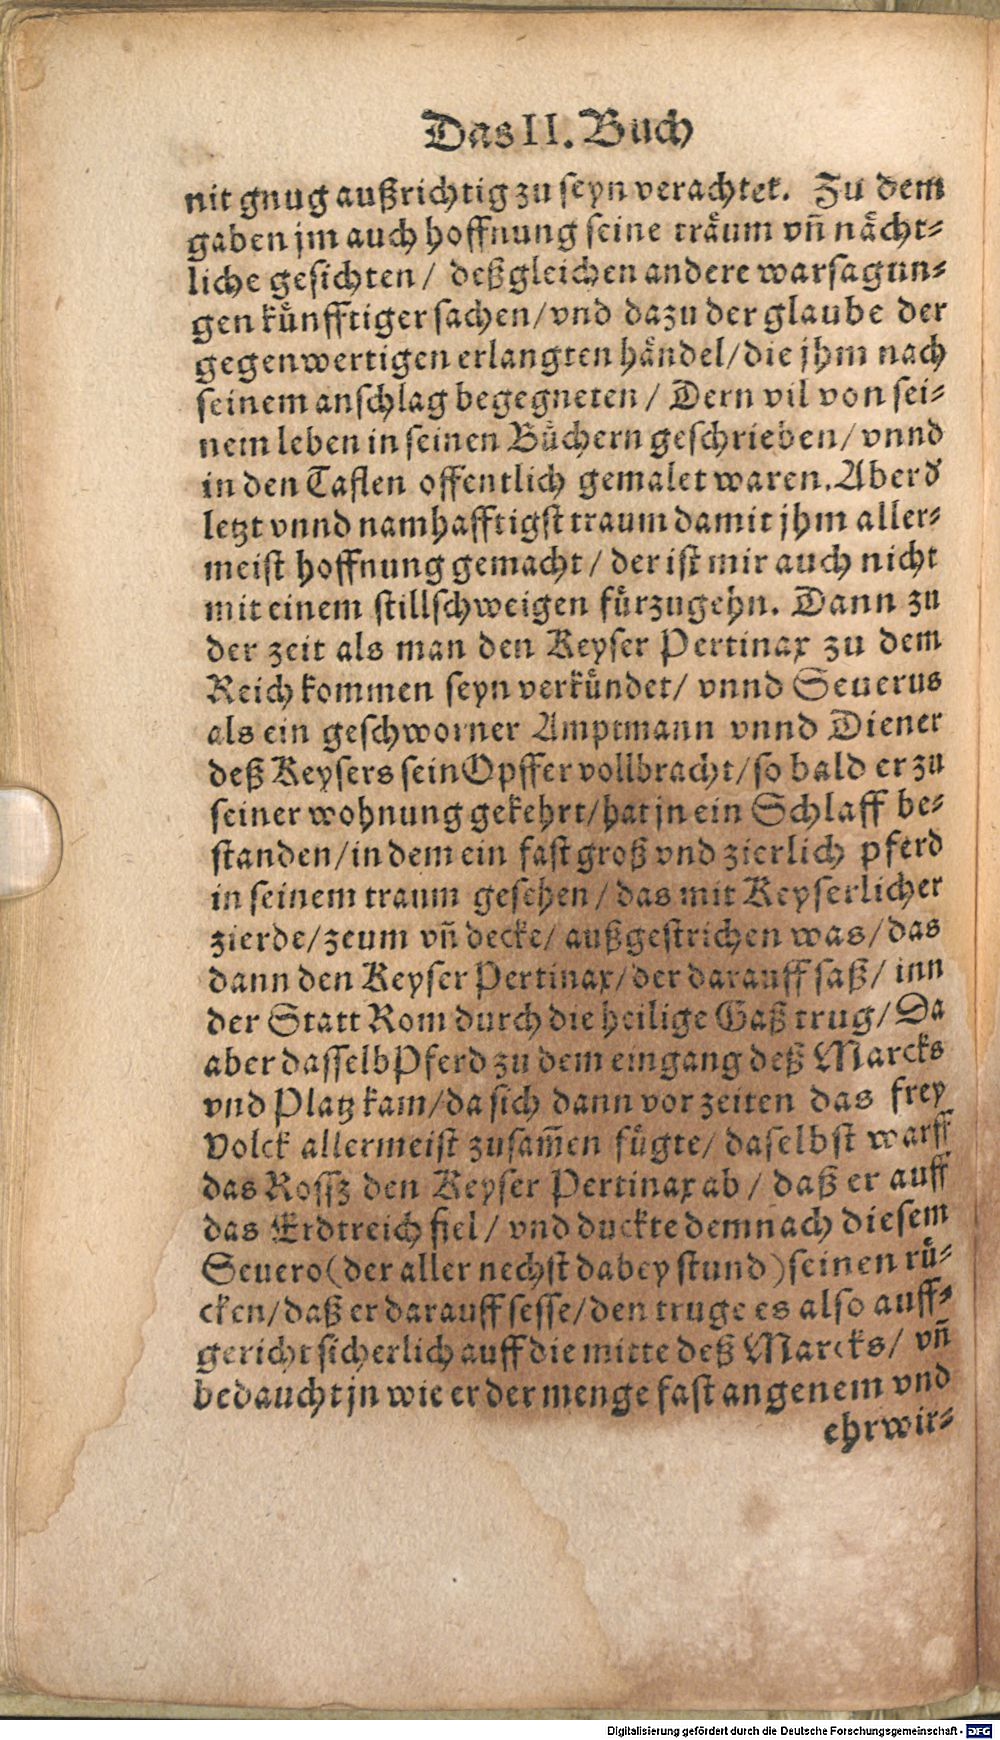 Das II. Buch
nit gnug außrichtig zu seyn verachtet. Zu dem
gaben jm auch hoffnung seine träum vñ nächt⸗
liche gesichten / deßgleichen andere warsagun⸗
gen künfftiger sachen / vnd dazu der glaube der
gegenwertigen erlangten händel / die jhm nach
seinem anschlag begegneten / Dern vil von sei⸗
nem leben in seinen Büchern geschrieben / vnnd
in den Taflen offentlich gemalet waren. Aber d'
letzt vnnd namhafftigst traum damit jhm aller⸗
meist hoffnung gemacht / der ist mir auch nicht
mit einem stillschweigen fürzugehn. Dann zu
der zeit als man den Keyser Pertinax zu dem
Reich kommen seyn verkündet / vnnd Seuerus
als ein geschworner Amptmann vnnd Diener
deß Keysers sein Opffer vollbracht / so bald er zu
seiner wohnung gekehrt / hat jn ein Schlaff be⸗
standen / in dem ein fast groß vnd zierlich pferd
in seinem traum gesehen / das mit Keyserlicher
zierde / zeum vñ decke / außgestrichen was / das
dann den Keyser Pertinax / der darauff saß / inn
der Statt Rom durch die heilige Gaß trug / Da
aber dasselb Pferd zu dem eingang deß Marcks
vnd Platz kam / da sich dann vor zeiten das frey
Volck allermeist zusam̄en fügte / daselbst warff
das Rossz den Keyser Pertinax ab / daß er auff
das Erdtreich fiel / vnd duckte demnach diesem
Seuero (der aller nechst dabey stund) seinen rü⸗
cken / daß er darauff sesse / den truge es also auff⸗
gericht sicherlich auff die mitte deß Marcks / vñ
bedaucht jn wie er der menge fast angenem vnd
ehrwir⸗
Digitalisierung gefördert durch die Deutsche Forschungsgemeinschaft - DFG